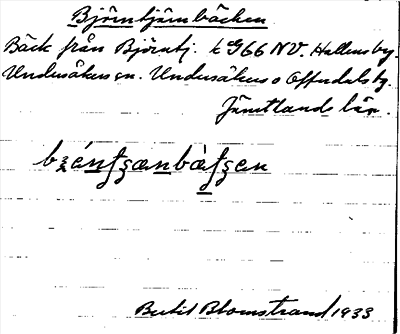 Björntjärnbäcken
Bäck från Björntj. k G66 NV. Hallens by.
Undersåkers sn. Undersåkers o Offerdals tg.
Jämtlands län.
Bertil Blomstrand 1933